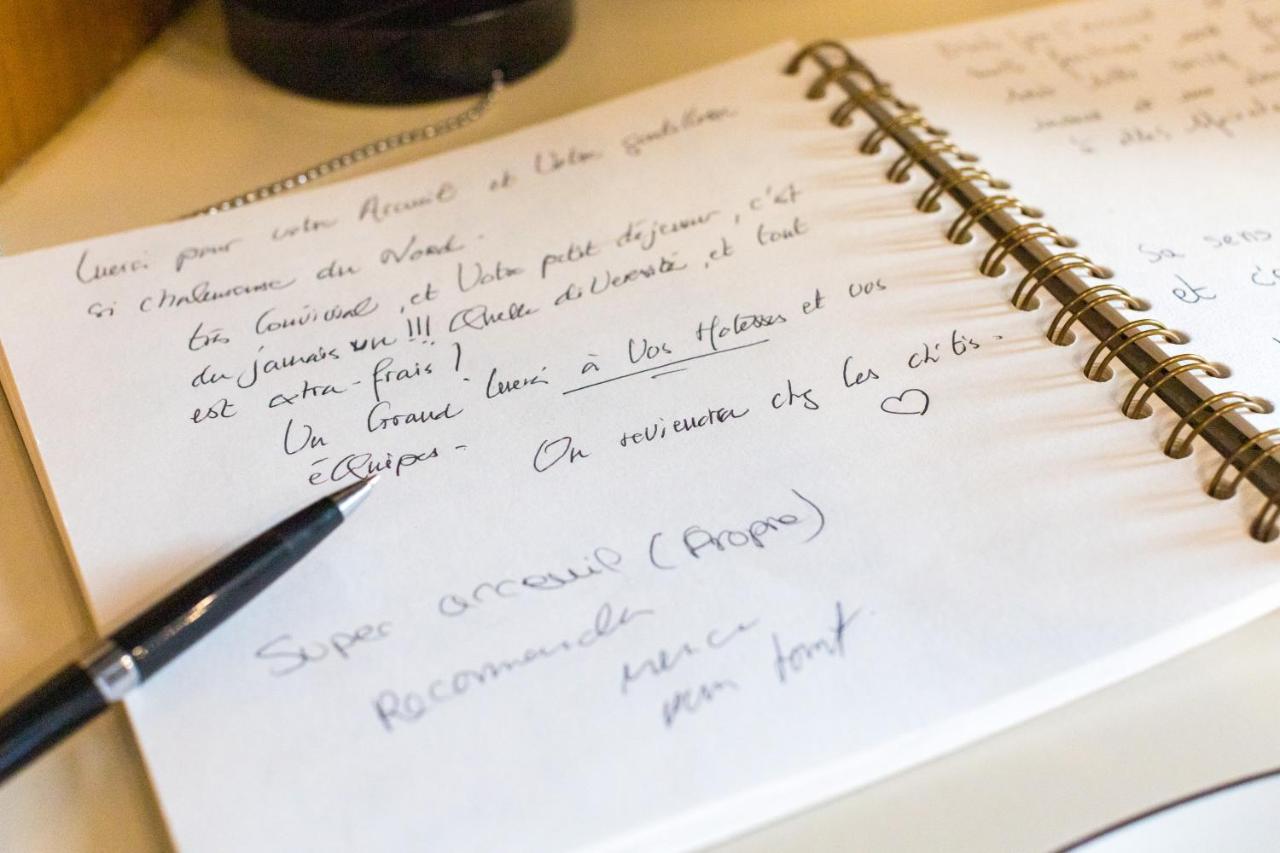 Merci pour votre Accueil et Votre gentillesse
si chaleureuse du Nord.
très Convivial, et Votre petit déjeuner, c'est
du jamais vu !!! Quelle diVersité, et tout
est extra-frais !
Un Grand Merci à Vos Hotesses et vos
éQuipes - On reviendra chez Les ch'tis -
Super acceuil (Propre)
Recommande
merci
pour tout
sa sens
et